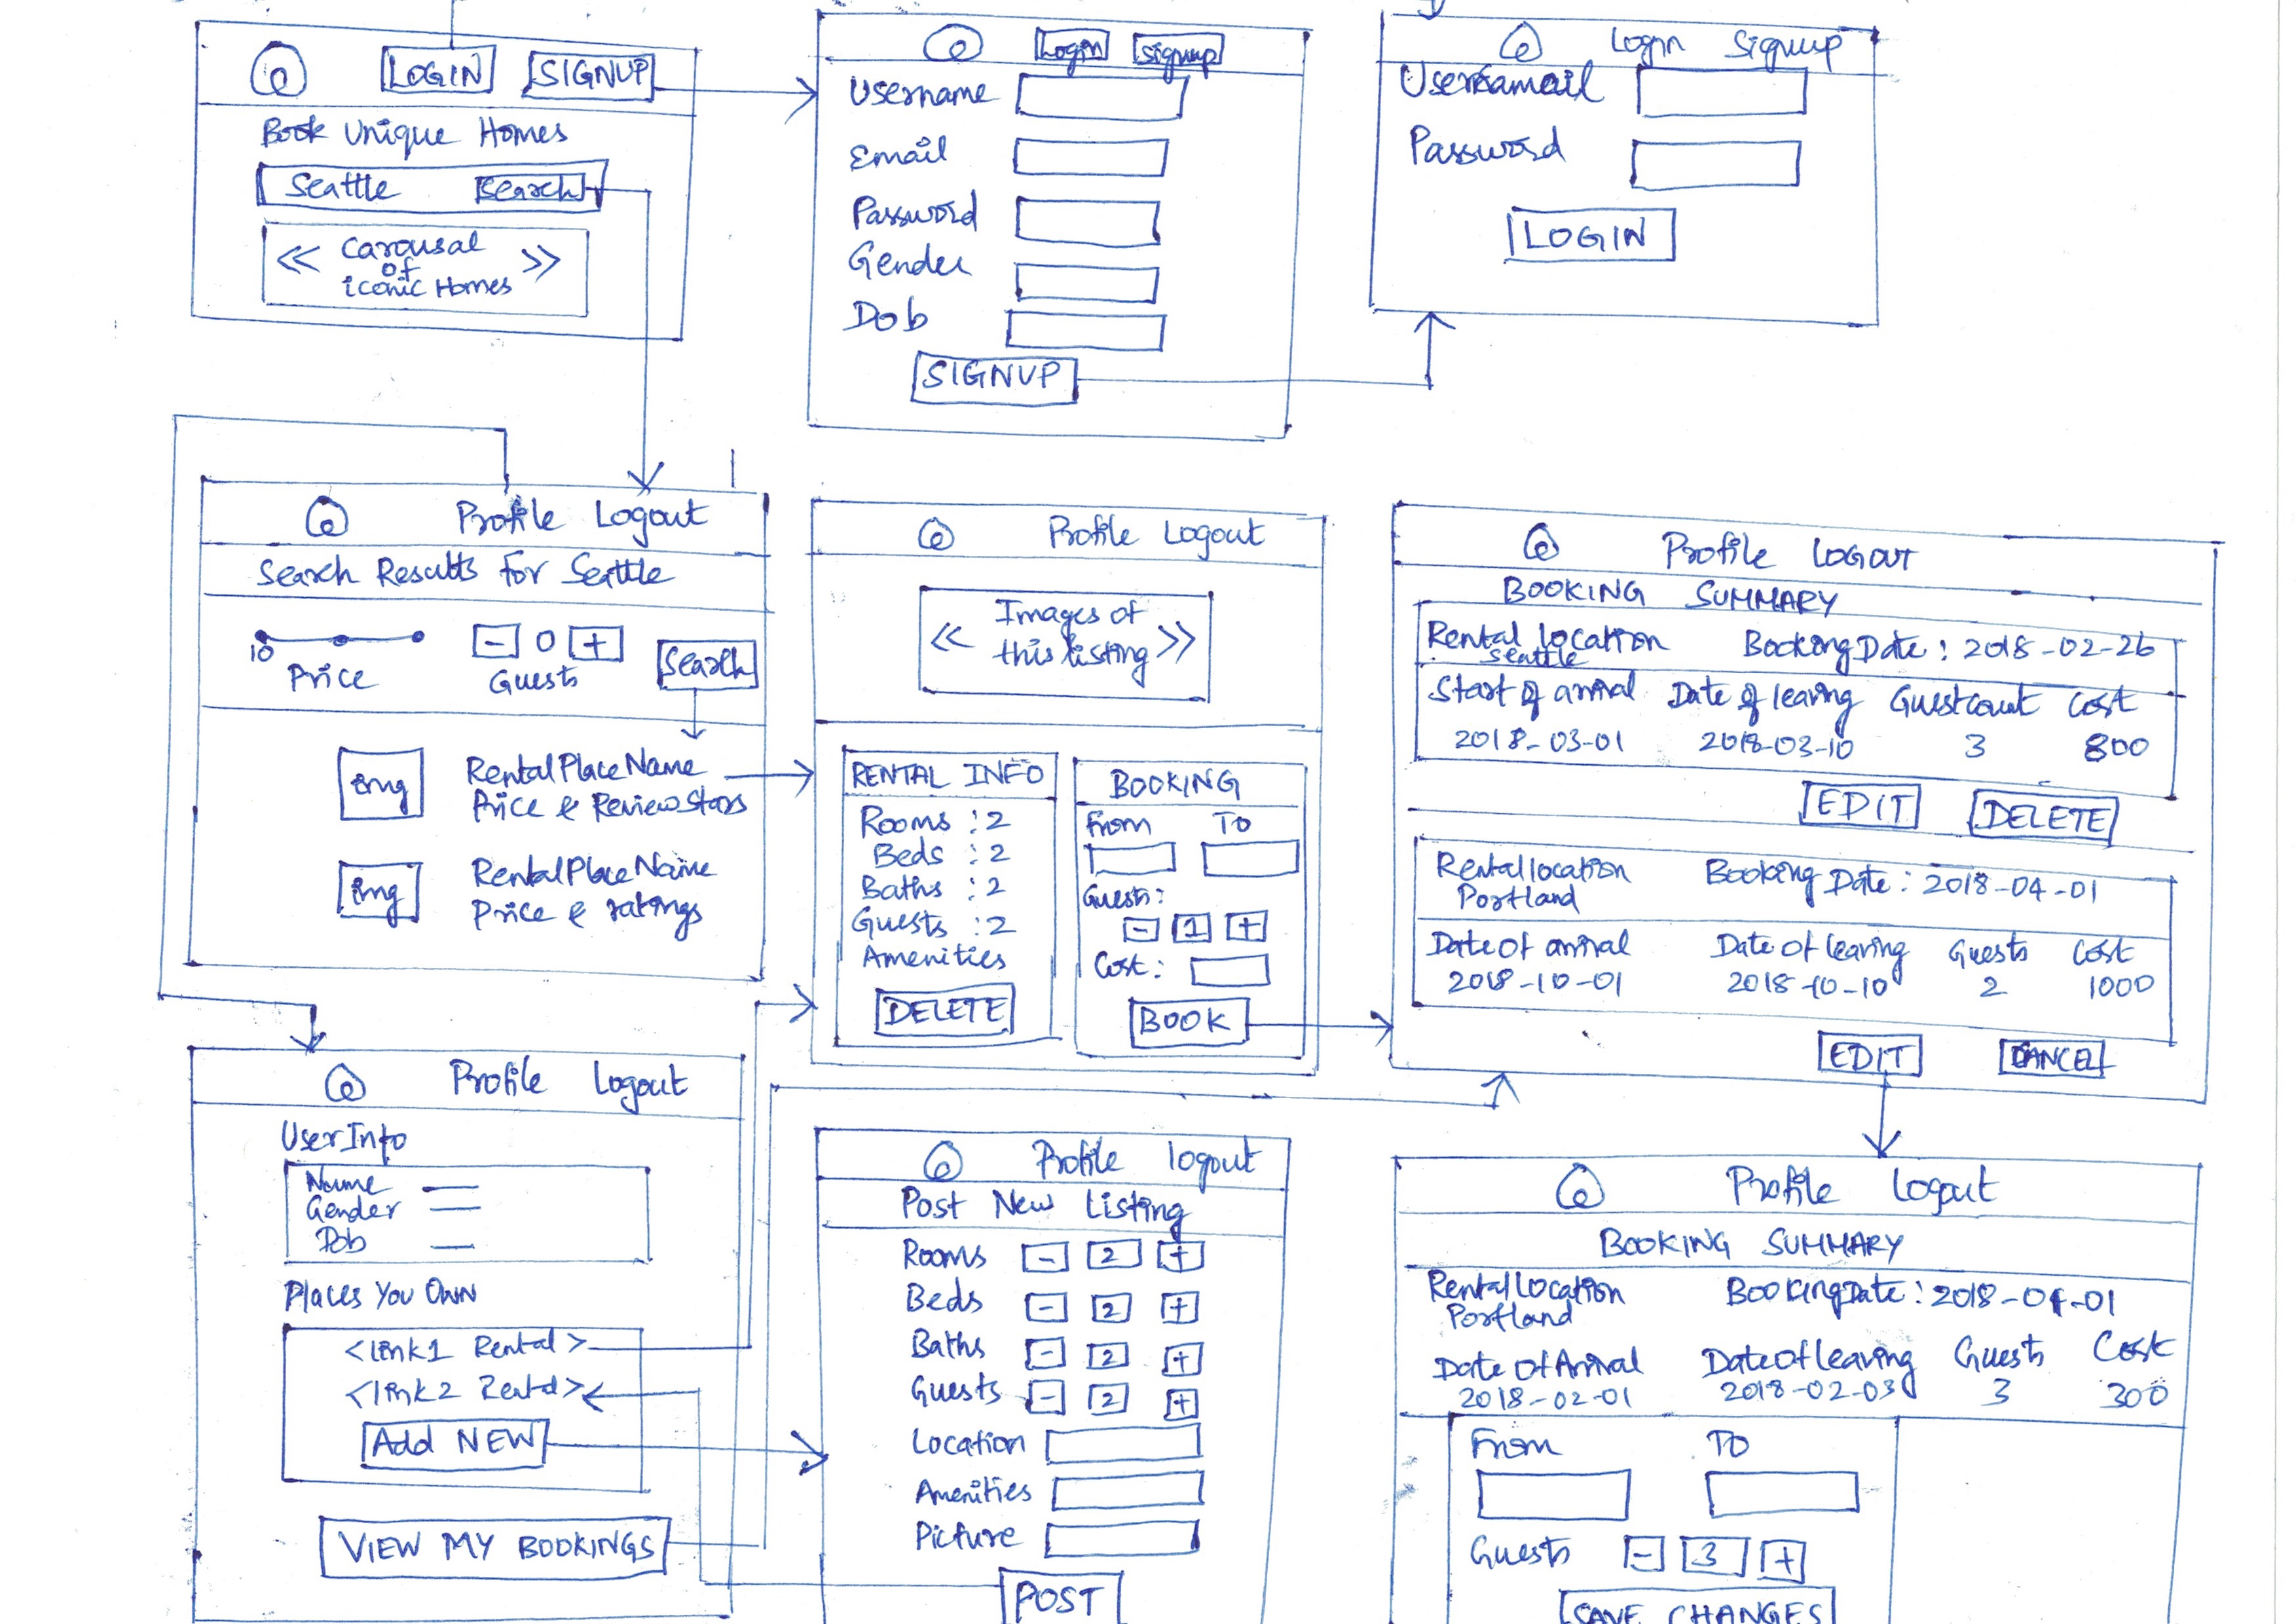 LOGIN SIGNUP
Book Unique Homes
Seattle Search
<< Carousal >>
of
iconic Homes
Login Signup
Username
Email
Password
Gender
Dob
SIGNUP
Login Signup
Password
LOGIN
Profile Logout
Search Results for Seattle
10
Price
- 0 +
Guests
Search
img RentalPlaceName
Price & Review Stars
img RentalPlaceName
Price & ratings
Profile Logout
<< Images of >>
this listing
RENTAL INFO
Rooms : 2
Beds : 2
Baths : 2
Guests : 2
Amenities
DELETE
BOOKING
From To
Guests:
- 1 +
Cost:
BOOK
Profile LOGOUT
BOOKING SUMMARY
Rental location Booking Date : 2018-02-26
Seattle
Start of arrival Date of leaving Guest count Cost
2018-03-01 2018-03-10 3 800
EDIT DELETE
Rental location Booking Date : 2018-04-01
Portland
Date of arrival Date of leaving Guests Cost
2018-10-01 2018-10-10 2 1000
EDIT CANCEL
Profile Logout
User Info
Name
Gender
Dob
Places You Own
<link1 Rental>
<link2 Rental>
Add NEW
VIEW MY BOOKINGS
Profile logout
Post New Listing
Rooms - 2 +
Beds - 2 +
Baths - 2 +
Guests - 2 +
Location
Amenities
Picture
POST
Profile Logout
BOOKING SUMMARY
Rental Location Booking Date : 2018-04-01
Portland
Date Of Arrival Date Of leaving Guests Cost
2018-02-01 2018-02-03 3 300
From To
Guests - 3 +
SAVE CHANGES